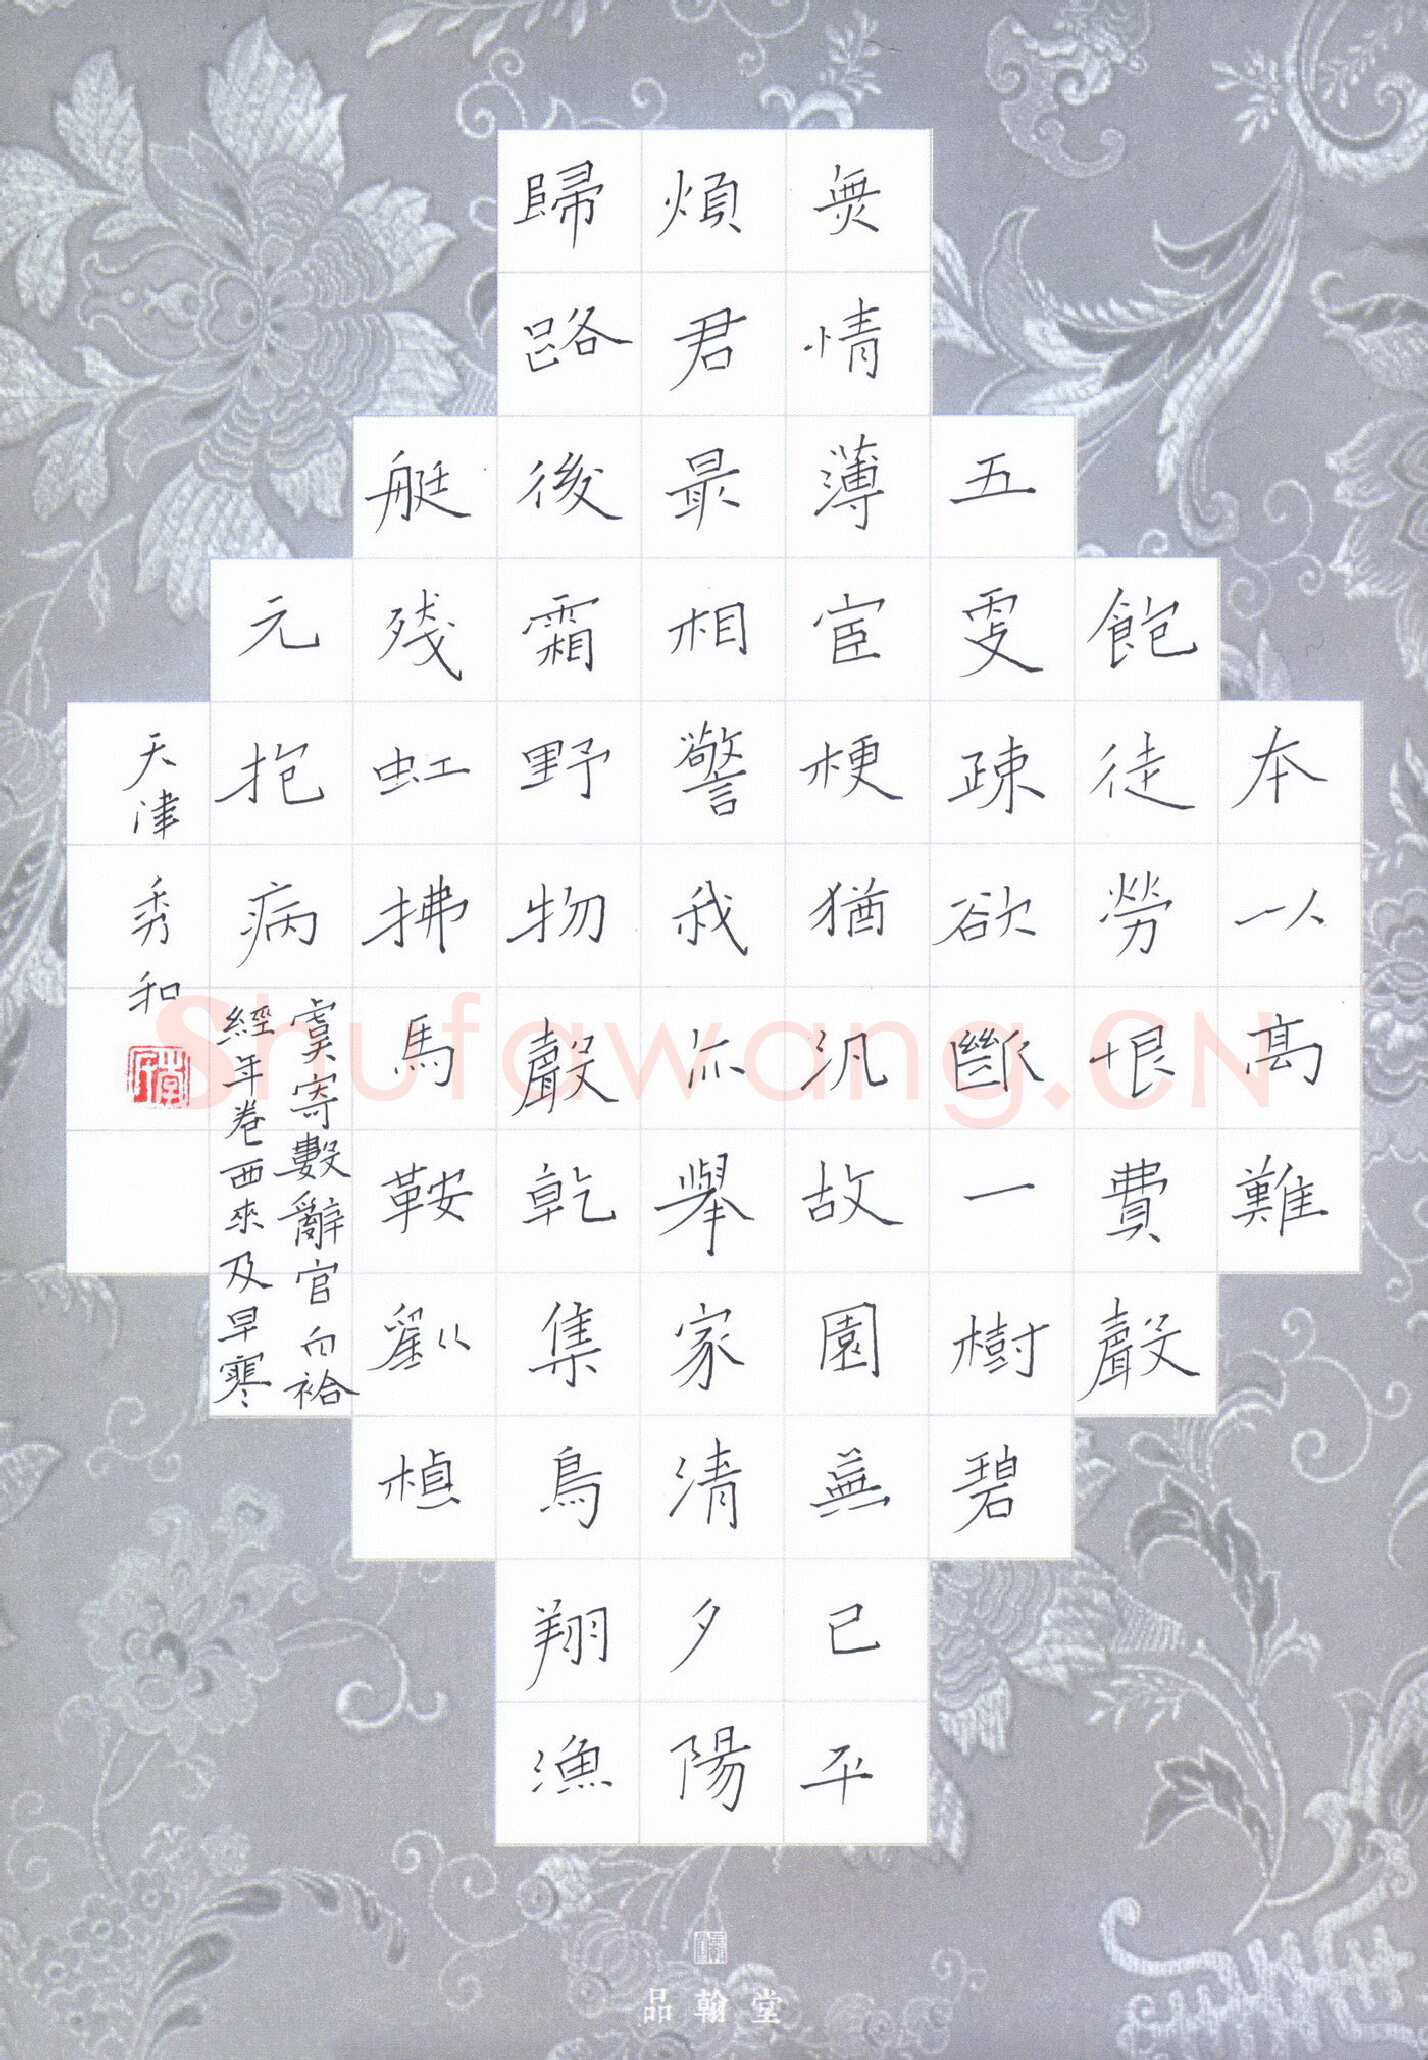 本以高難
飽徒勞恨費聲
五更疎欲斷一樹碧
無情薄宦梗猶汎故園蕪已平
煩君最相警我亦舉家清夕陽
歸路後霜野物聲乾集鳥翔漁
艇殘虹拂馬鞍劉楨
元抱病
虞寄數辭官白袷
經年卷西來及早寒
天津 秀和
Shufawang.CN
品翰堂